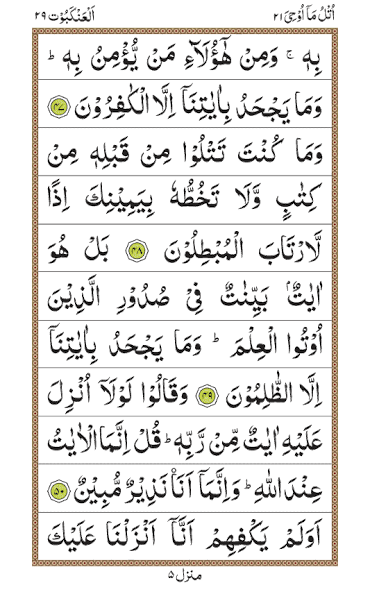 اُتْلُ مَاۤ اُوْحِیَ ۲۱
اَلْعَنْكَبُوْت ۲۹
بِهٖ ۚ وَمِنْ هٰۤؤُلَآءِ مَنْ یُّؤْمِنُ بِهٖ ؕ
وَمَا یَجْحَدُ بِاٰیٰتِنَاۤ اِلَّا الْكٰفِرُوْنَ ۴۷
وَمَا كُنْتَ تَتْلُوْا مِنْ قَبْلِهٖ مِنْ
كِتٰبٍ وَّلَا تَخُطُّهٗ بِیَمِیْنِكَ اِذًا
لَّارْتَابَ الْمُبْطِلُوْنَ ۴۸ بَلْ هُوَ
اٰیٰتٌۢ بَیِّنٰتٌ فِیْ صُدُوْرِ الَّذِیْنَ
اُوْتُوا الْعِلْمَ ؕ وَمَا یَجْحَدُ بِاٰیٰتِنَاۤ
اِلَّا الظّٰلِمُوْنَ ۴۹ وَقَالُوْا لَوْلَاۤ اُنْزِلَ
عَلَیْهِ اٰیٰتٌ مِّنْ رَّبِّهٖ ؕ قُلْ اِنَّمَا الْاٰیٰتُ
عِنْدَ اللّٰهِ ؕ وَاِنَّمَاۤ اَنَا۠ نَذِیْرٌ مُّبِیْنٌ ۵۰
اَوَلَمْ یَكْفِهِمْ اَنَّاۤ اَنْزَلْنَا عَلَیْكَ
منزل ۵